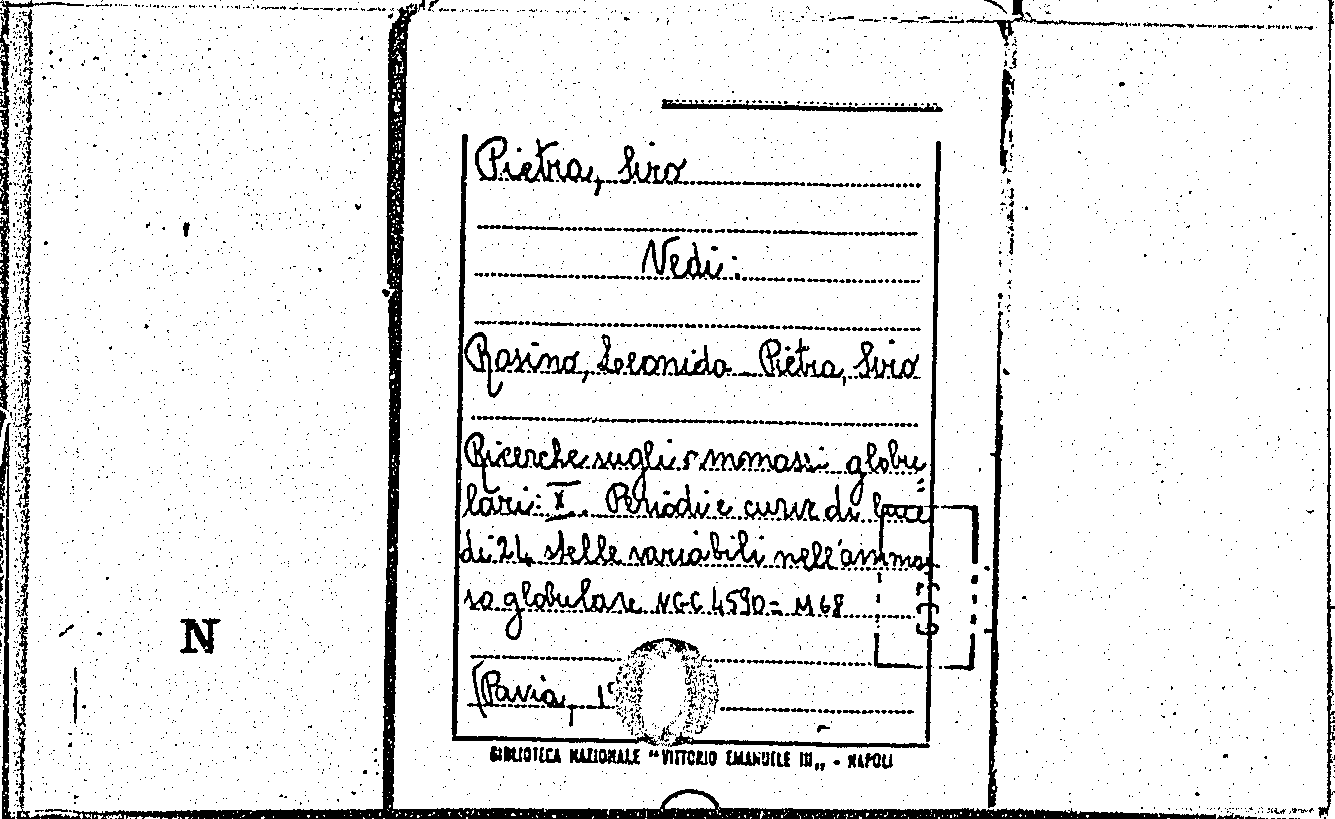 Pietra, Siro
Vedi:
Rosino, Leonida - Pietra, Siro
Ricerche sugli ammassi globu=
lari: X. Periodi e curve di luce
di 24 stelle variabili nell'ammas
so globulare NGC 4590 = M 68
(Pavia,
N
BIBLIOTECA NAZIONALE "VITTORIO EMANUELE III„ - NAPOLI